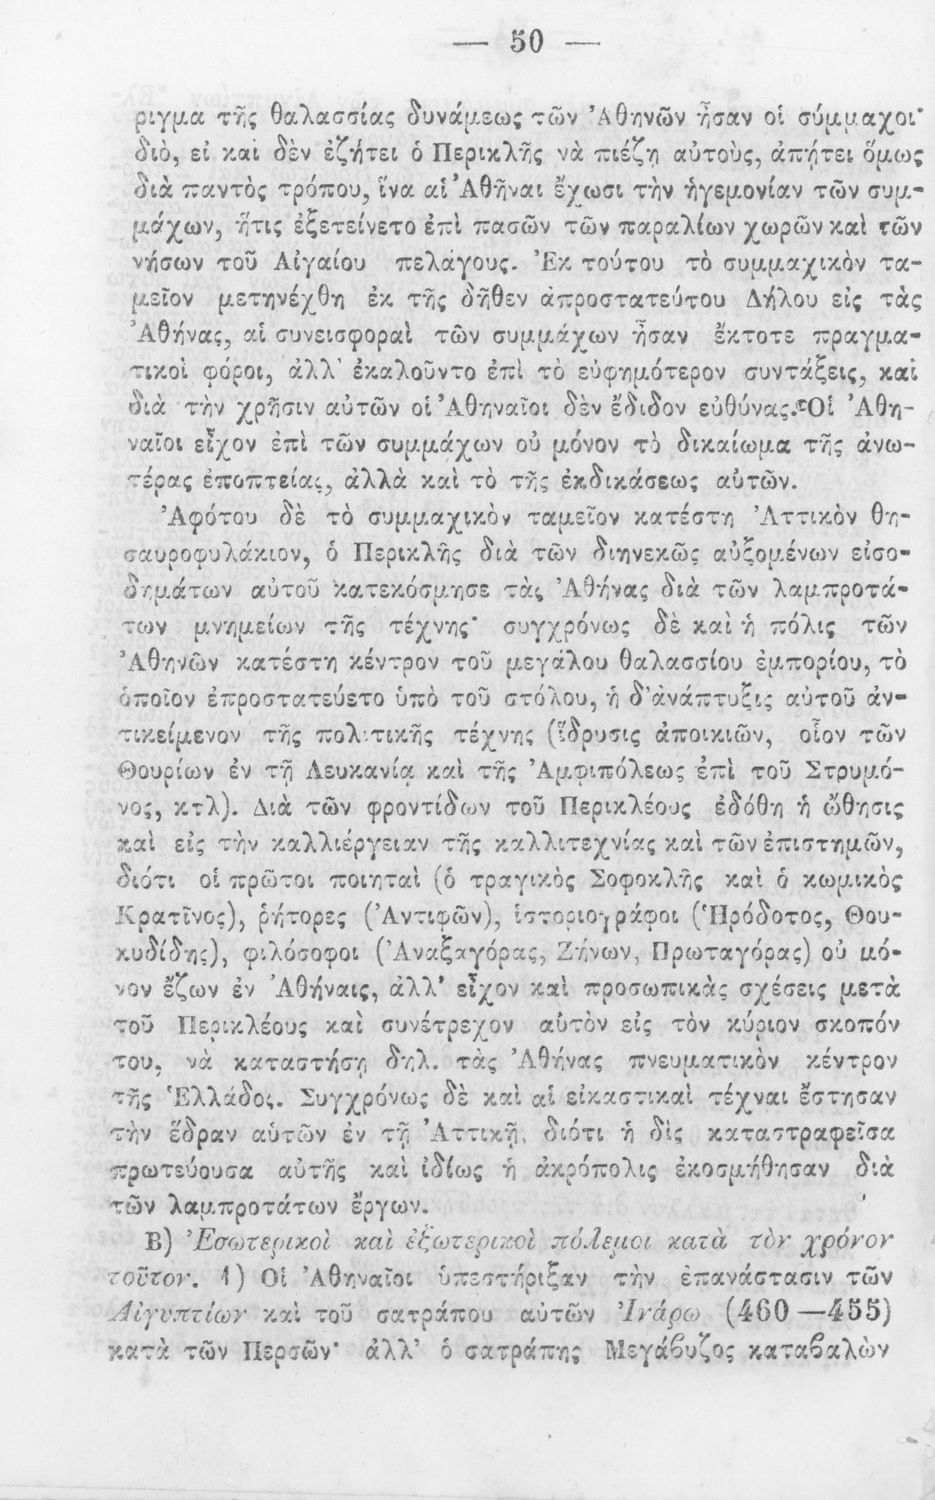 — 50 —
ριγμα τῆς θαλασσίας δυνάμεως τῶν Ἀθηνῶν ἦσαν οἱ σύμμαχοι·
διὸ, εἰ καὶ δὲν ἐζήτει ὁ Περικλῆς νὰ πιέζῃ αὐτοὺς, ἀπῄτει ὅμως
διὰ παντὸς τρόπου, ἵνα αἱ Ἀθῆναι ἔχωσι τὴν ἡγεμονίαν τῶν συμ-
μάχων, ἥτις ἐξετείνετο ἐπὶ πασῶν τῶν παραλίων χωρῶν καὶ τῶν
νήσων τοῦ Αἰγαίου πελάγους. Ἐκ τούτου τὸ συμμαχικὸν τα-
μεῖον μετηνέχθη ἐκ τῆς δῆθεν ἀπροστατεύτου Δήλου εἰς τὰς
Ἀθήνας, αἱ συνεισφοραὶ τῶν συμμάχων ἦσαν ἔκτοτε πραγμα-
τικοὶ φόροι, ἀλλ' ἐκαλοῦντο ἐπὶ τὸ εὐφημότερον συντάξεις, καὶ
διὰ τὴν χρῆσιν αὐτῶν οἱ Ἀθηναῖοι δὲν ἔδιδον εὐθύνας. Οἱ Ἀθη-
ναῖοι εἶχον ἐπὶ τῶν συμμάχων οὐ μόνον τὸ δικαίωμα τῆς ἀνω-
τέρας ἐποπτείας, ἀλλὰ καὶ τὸ τῆς ἐκδικάσεως αὐτῶν.
Ἀφότου δὲ τὸ συμμαχικὸν ταμεῖον κατέστη Ἀττικὸν θη-
σαυροφυλάκιον, ὁ Περικλῆς διὰ τῶν διηνεκῶς αὐξομένων εἰσο-
δημάτων αὐτοῦ κατεκόσμησε τὰς Ἀθήνας διὰ τῶν λαμπροτά-
των μνημείων τῆς τέχνης· συγχρόνως δὲ καὶ ἡ πόλις τῶν
Ἀθηνῶν κατέστη κέντρον τοῦ μεγάλου θαλασσίου ἐμπορίου, τὸ
ὁποῖον ἐπροστατεύετο ὑπὸ τοῦ στόλου, ἡ δ' ἀνάπτυξις αὐτοῦ ἀν-
τικείμενον τῆς πολιτικῆς τέχνης (ἵδρυσις ἀποικιῶν, οἷον τῶν
Θουρίων ἐν τῇ Λευκανίᾳ καὶ τῆς Ἀμφιπόλεως ἐπὶ τοῦ Στρυμό-
νος, κτλ). Διὰ τῶν φροντίδων τοῦ Περικλέους ἐδόθη ἡ ὤθησις
καὶ εἰς τὴν καλλιέργειαν τῆς καλλιτεχνίας καὶ τῶν ἐπιστημῶν,
διότι οἱ πρῶτοι ποιηταὶ (ὁ τραγικὸς Σοφοκλῆς καὶ ὁ κωμικὸς
Κρατῖνος), ῥήτορες (Ἀντιφῶν), ἱστοριογράφοι (Ἡρόδοτος, Θου-
κυδίδης), φιλόσοφοι (Ἀναξαγόρας, Ζήνων, Πρωταγόρας) οὐ μό-
νον ἔζων ἐν Ἀθήναις, ἀλλ' εἶχον καὶ προσωπικὰς σχέσεις μετὰ
τοῦ Περικλέους καὶ συνέτρεχον αὐτὸν εἰς τὸν κύριον σκοπόν
του, νὰ καταστήσῃ δηλ. τὰς Ἀθήνας πνευματικὸν κέντρον
τῆς Ἑλλάδος. Συγχρόνως δὲ καὶ αἱ εἰκαστικαὶ τέχναι ἔστησαν
τὴν ἕδραν αὑτῶν ἐν τῇ Ἀττικῇ, διότι ἡ δὶς καταστραφεῖσα
πρωτεύουσα αὐτῆς καὶ ἰδίως ἡ ἀκρόπολις ἐκοσμήθησαν διὰ
τῶν λαμπροτάτων ἔργων.
Β) Ἐσωτερικοὶ καὶ ἐξωτερικοὶ πόλεμοι κατὰ τὸν χρόνον
τοῦτον. 1) Οἱ Ἀθηναῖοι ὑπεστήριξαν τὴν ἐπανάστασιν τῶν
Αἰγυπτίων καὶ τοῦ σατράπου αὐτῶν Ἰνάρω (460 —455)
κατὰ τῶν Περσῶν· ἀλλ' ὁ σατράπης Μεγάϐυζος καταϐαλὼν